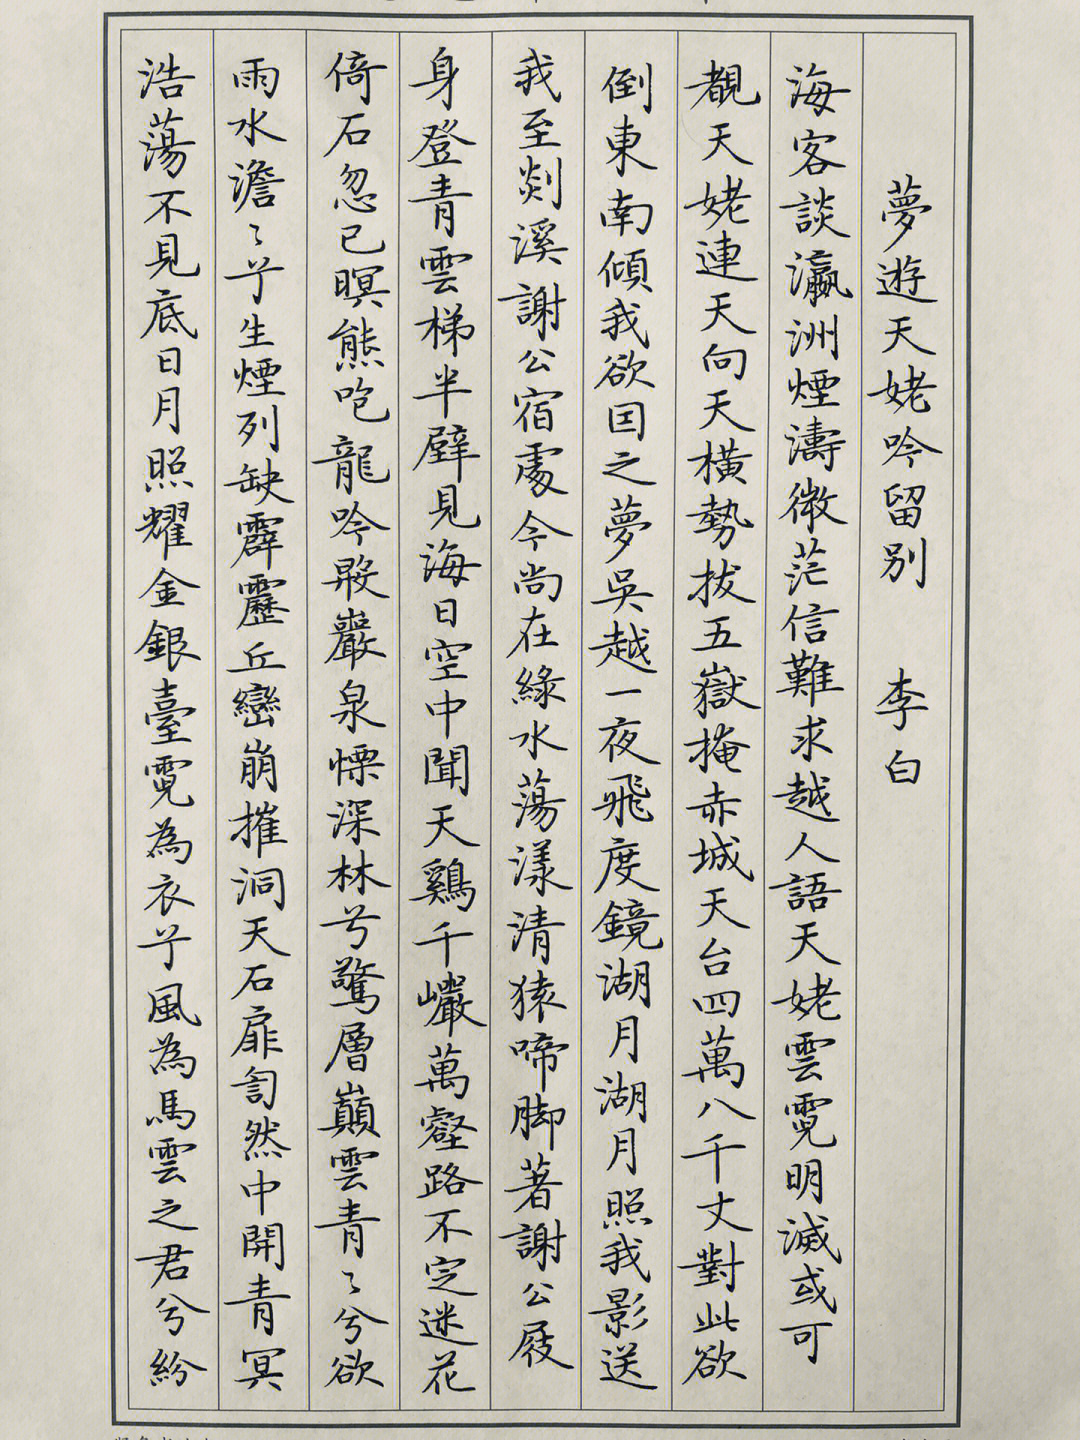 夢遊天姥吟留別 李白
海客談瀛洲煙濤微茫信難求越人語天姥雲霓明滅或可
覩天姥連天向天橫勢拔五嶽掩赤城天台四萬八千丈對此欲
倒東南傾我欲因之夢吳越一夜飛度鏡湖月湖月照我影送
我至剡溪謝公宿處今尚在綠水蕩漾清猿啼脚著謝公屐
身登青雲梯半壁見海日空中聞天鷄千巖萬壑路不定迷花
倚石忽已暝熊咆龍吟殷巖泉慄深林兮驚層巔雲青〻兮欲
雨水澹〻兮生煙列缺霹靂丘巒崩摧洞天石扉訇然中開青冥
浩蕩不見底日月照耀金銀臺霓為衣兮風為馬雲之君兮紛